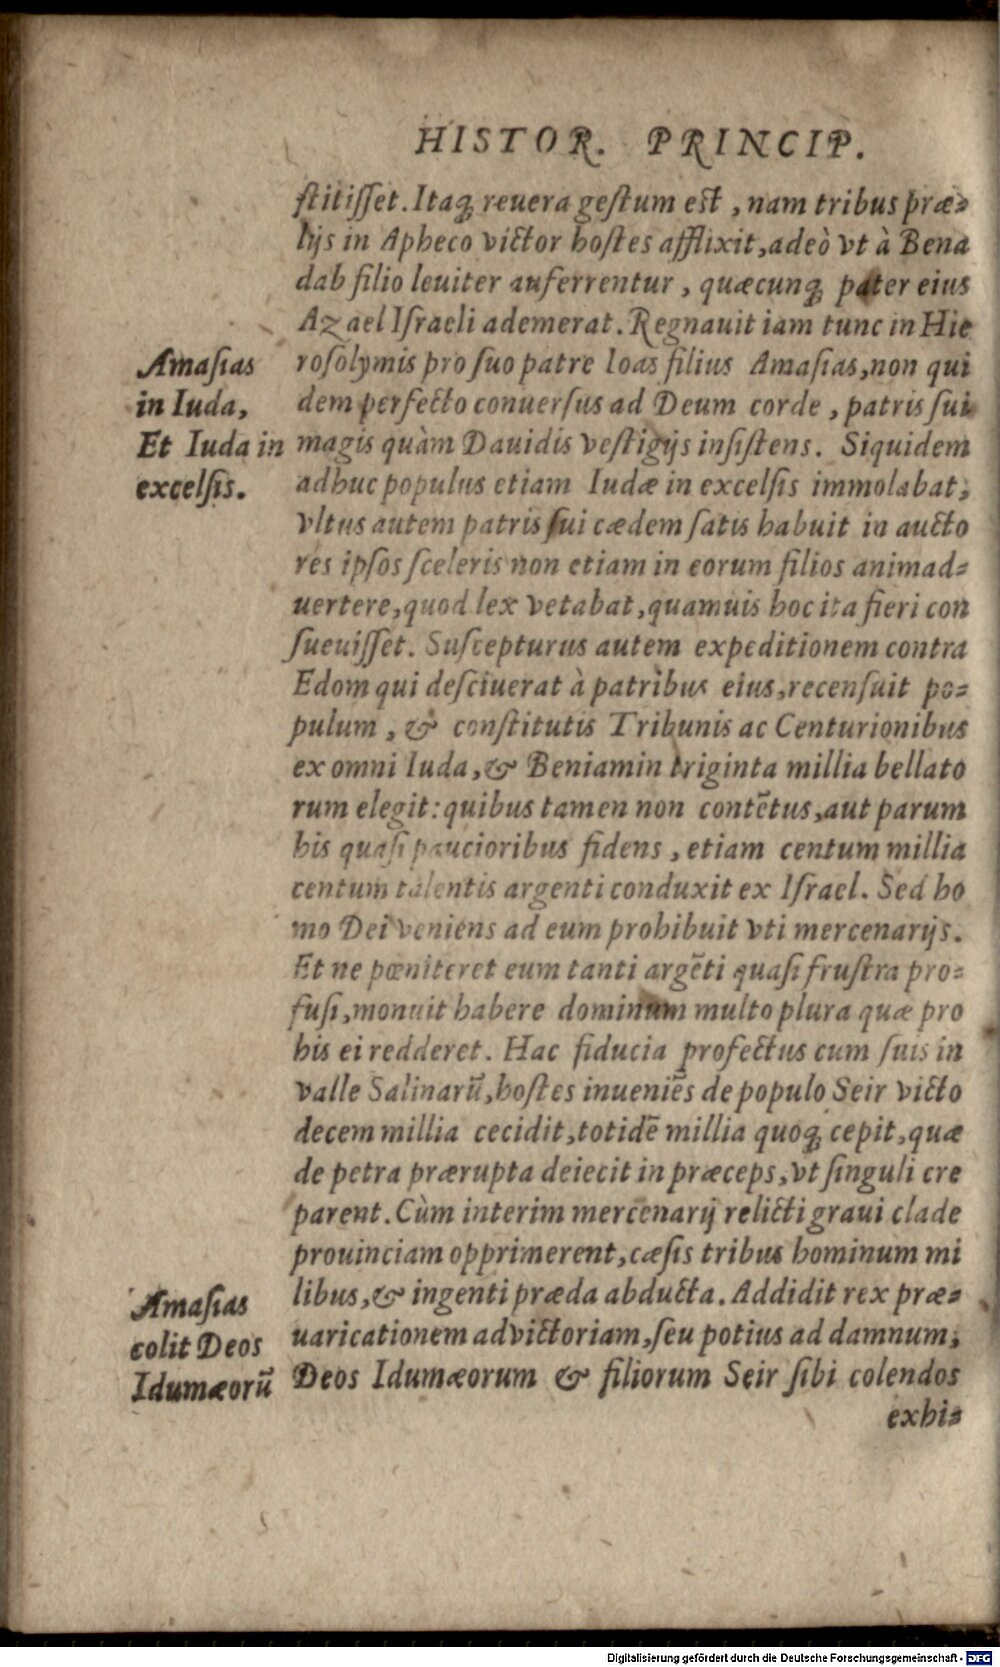 HISTOR. PRINCIP.
ſtitiſſet. Itaqꝫ reuera geſtum eſt, nam tribus præ-
lijs in Apheco victor hoſtes afflixit, adeò vt à Bena
dab filio leuiter auferrentur, quæcunqꝫ pater eius
Azael Iſraeli ademerat. Regnauit iam tunc in Hie
roſolymis pro ſuo patre Ioas filius Amaſias, non qui
dem perfecto conuerſus ad Deum corde, patris ſui
magis quàm Dauidis veſtigijs inſiſtens. Siquidem
adhuc populus etiam Iudæ in excelſis immolabat,
vltus autem patris ſui cædem ſatis habuit in aucto
res ipſos ſceleris non etiam in eorum filios animad-
uertere, quod lex vetabat, quamuis hoc ita fieri con
ſueuiſſet. Suſcepturus autem expeditionem contra
Edom qui deſciuerat à patribus eius, recenſuit po-
pulum, & conſtitutis Tribunis ac Centurionibus
ex omni Iuda, & Beniamin triginta millia bellato
rum elegit: quibus tamen non contētus, aut parum
his quaſi paucioribus fidens, etiam centum millia
centum talentis argenti conduxit ex Iſrael. Sed ho
mo Dei veniens ad eum prohibuit vti mercenarijs.
Et ne pœniteret eum tanti argēti quaſi fruſtra pro-
fuſi, monuit habere dominum multo plura quæ pro
his ei redderet. Hac fiducia profectus cum ſuis in
valle Salinarū, hoſtes inueniēs de populo Seir victo
decem millia cecidit, totidē millia quoqꝫ cepit, quæ
de petra prærupta deiecit in præceps, vt ſinguli cre
parent. Cùm interim mercenarij relicti graui clade
prouinciam opprimerent, cæſis tribus hominum mi
libus, & ingenti præda abducta. Addidit rex præ-
uaricationem ad victoriam, ſeu potius ad damnum,
Deos Idumæorum & filiorum Seir ſibi colendos
exhi-
Amaſias
in Iuda,
Et Iuda in
excelſis.
Amaſias
colit Deos
Idumæorū
Digitalisierung gefördert durch die Deutsche Forschungsgemeinschaft - DFG